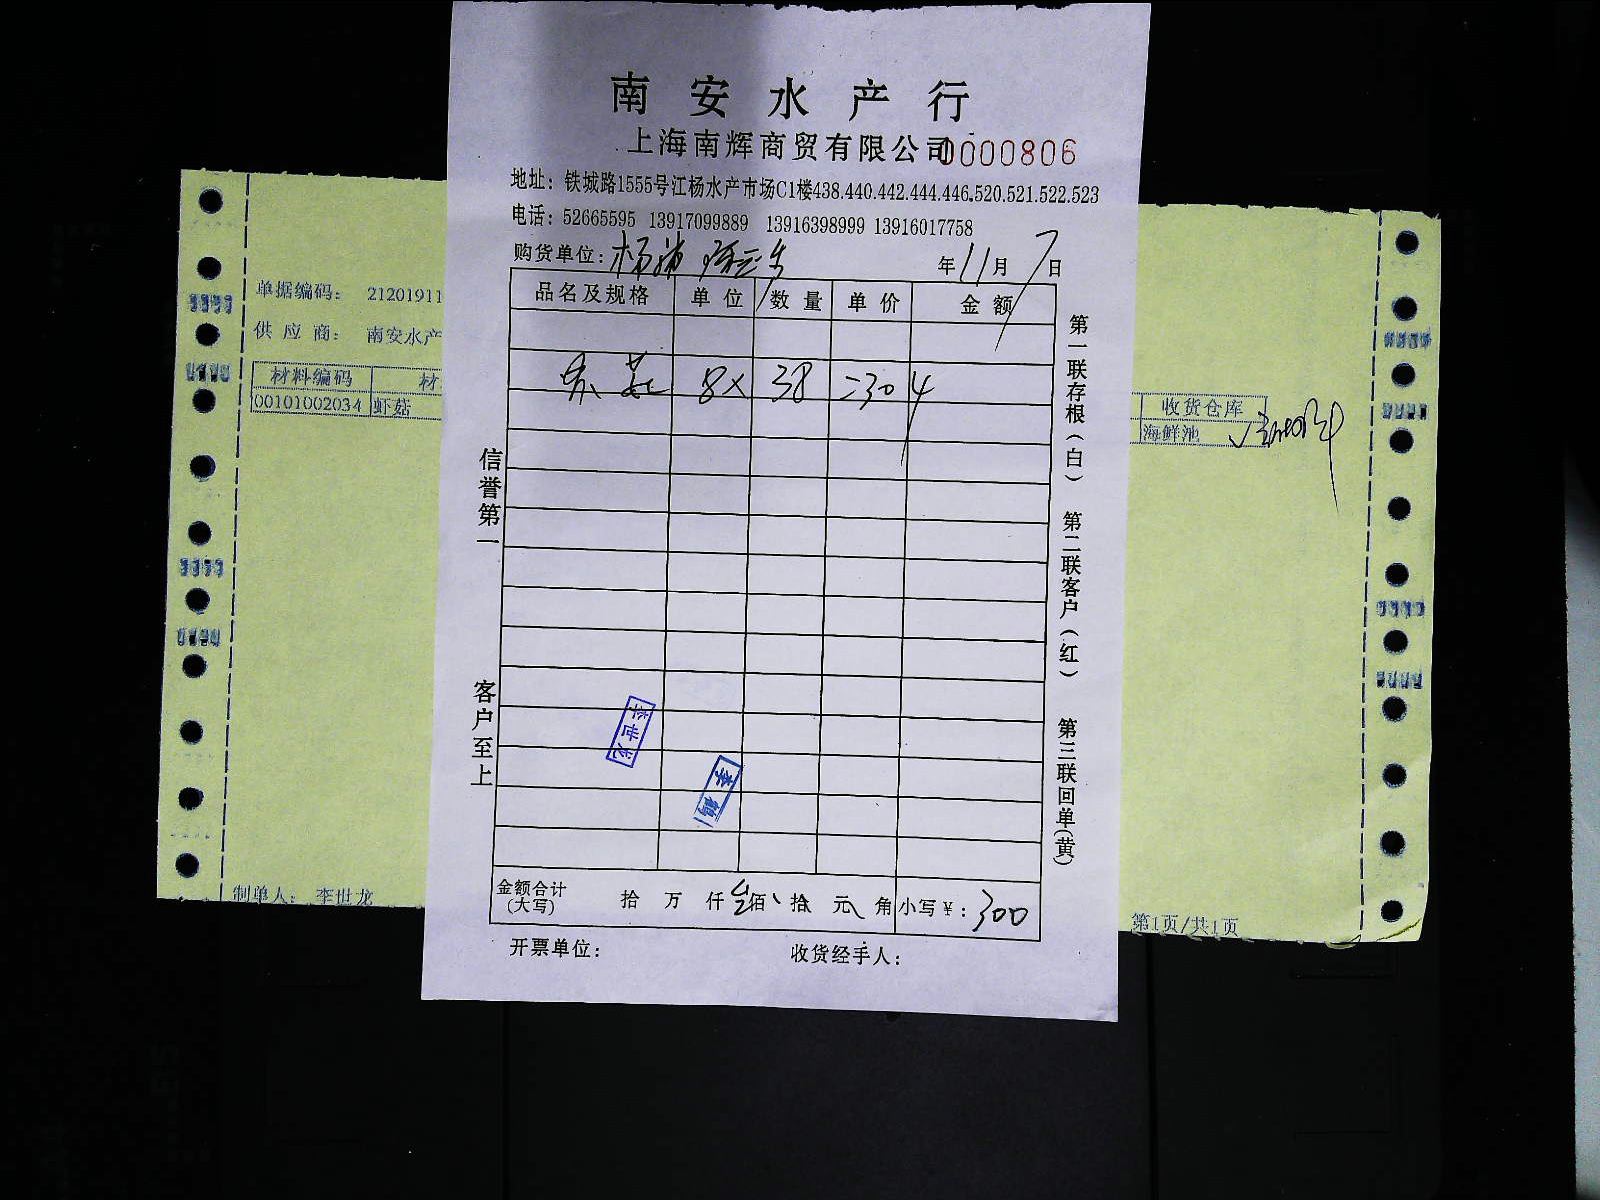 南安水产行
上海南辉商贸有限公司 0000806
地址：铁城路1555号江杨水产市场C1楼438.440.442.444.446.520.521.522.523
电话：52665595 13917099889 13916398999 13916017758
购货单位： 年 11 月 7 日
品名及规格 单位 数量 单价 金额
8× 38 =304
信誉第一
客户至上
第一联存根（白） 第二联客户（红） 第三联回单（黄）
李世龙
李鹤
金额合计（大写） 拾 万 仟 佰 拾 元 角 小写￥：300
开票单位： 收货经手人：
单据编码： 21201911
供应商： 南安水产
材料编码 材
00101002034 虾菇
收货仓库
海鲜池
制单人： 李世龙
第1页/共1页